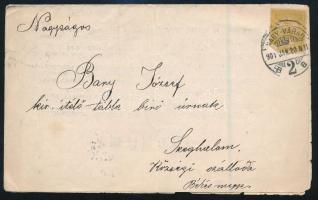 Nagyságos
Bary József
kir. itélő-tábla biró úrnak
Szeghalom,
Községi szálloda
Békés megye